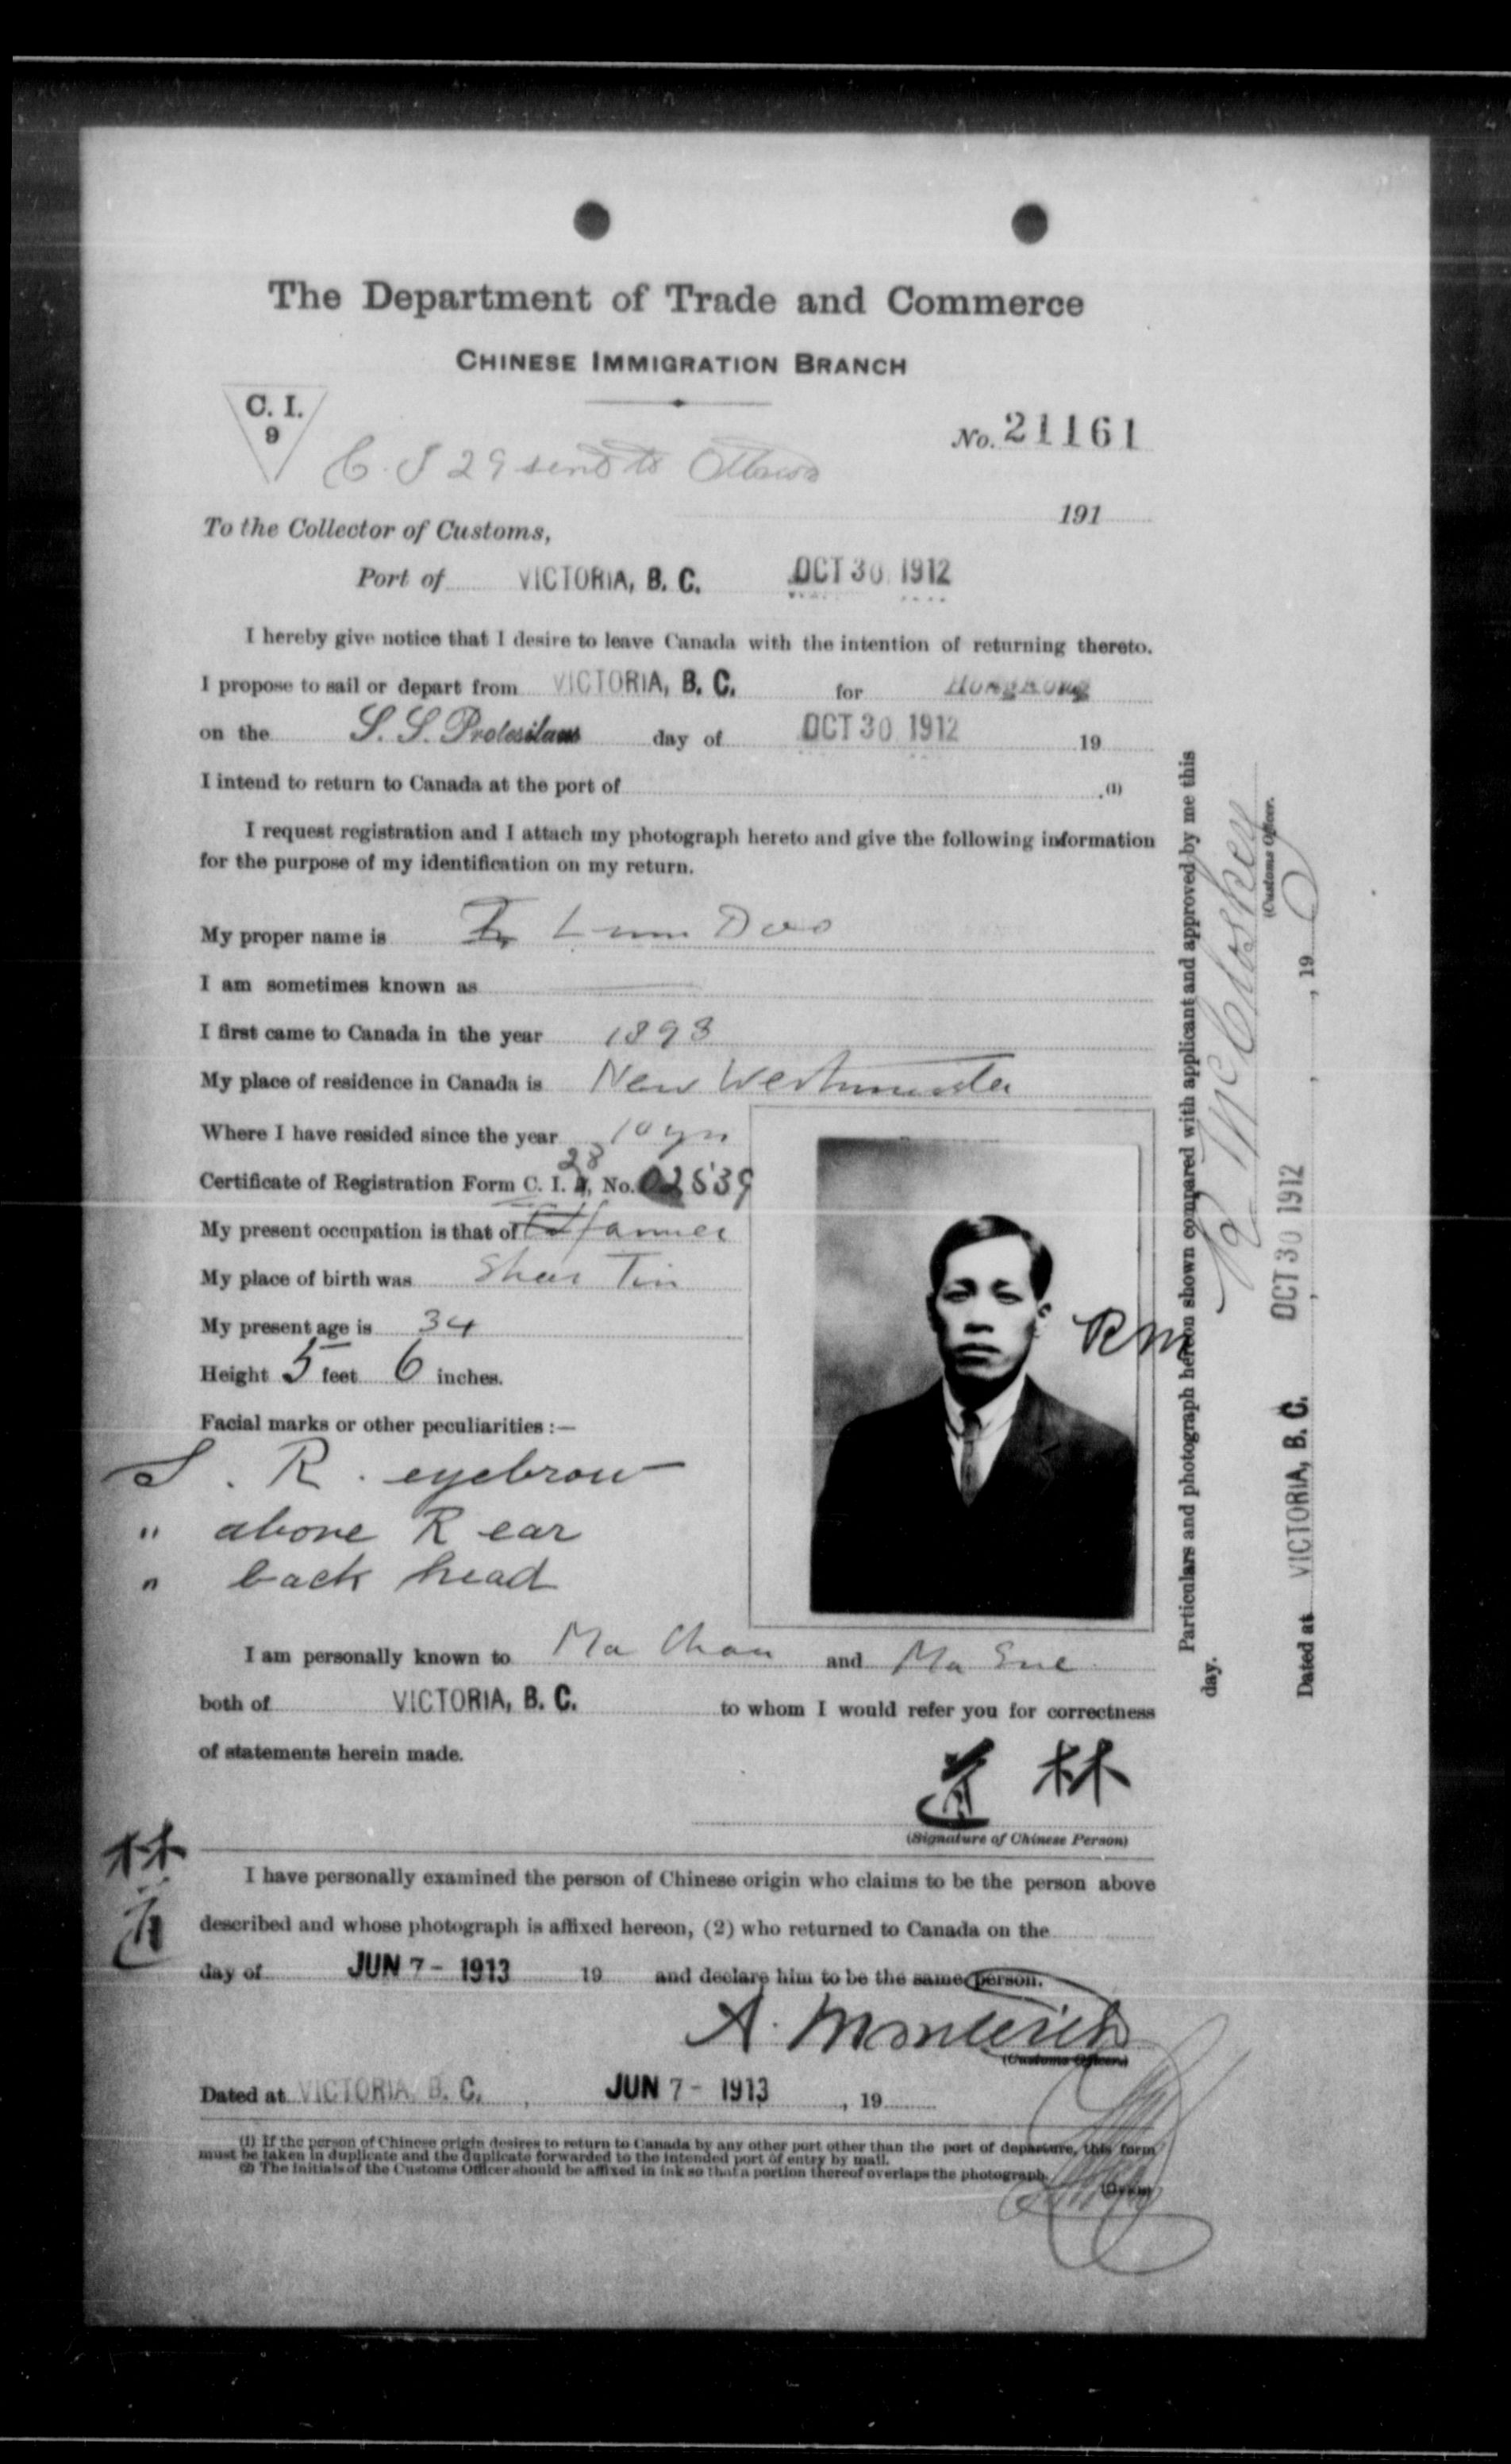 The Department of Trade and Commerce
CHINESE IMMIGRATION BRANCH
C. I.
9
No. 21161
C. I 29 send to Ottawa
191
To the Collector of Customs,
Port of VICTORIA, B. C. OCT 30 1912
I hereby give notice that I desire to leave Canada with the intention of returning thereto.
I propose to sail or depart from VICTORIA, B. C. for HongKong
on the S. S. Protesilaus day of OCT 30 1912 19
I intend to return to Canada at the port of .(1)
I request registration and I attach my photograph hereto and give the following information
for the purpose of my identification on my return.
My proper name is Lum Doo
I am sometimes known as
I first came to Canada in the year 1898
My place of residence in Canada is New Westminster
Where I have resided since the year 10 yrs
Certificate of Registration Form C. I. 28, No. 02539
My present occupation is that of farmer
My place of birth was Shar Tin
My present age is 34
Height 5 feet 6 inches.
Facial marks or other peculiarities :—
S. R. eyebrow
" above R ear
" back head
RM
I am personally known to Ma Chan and Ma Sue
both of VICTORIA, B. C. to whom I would refer you for correctness
of statements herein made.
道 林
(Signature of Chinese Person)
林
道
I have personally examined the person of Chinese origin who claims to be the person above
described and whose photograph is affixed hereon, (2) who returned to Canada on the
day of JUN 7 - 1913 19 and declare him to be the same person.
A.
(Customs Officer)
Dated at VICTORIA, B. C. , JUN 7 - 1913 , 19
(1) If the person of Chinese origin desires to return to Canada by any other port other than the port of departure, this form
must be taken in duplicate and the duplicate forwarded to the intended port of entry by mail.
(2) The initials of the Customs Officer should be affixed in ink so that a portion thereof overlaps the photograph.
Particulars and photograph hereon shown compared with applicant and approved by me this
day.
R McCloskey
(Customs Officer.
Dated at VICTORIA, B. C. OCT 30 1912 , 19